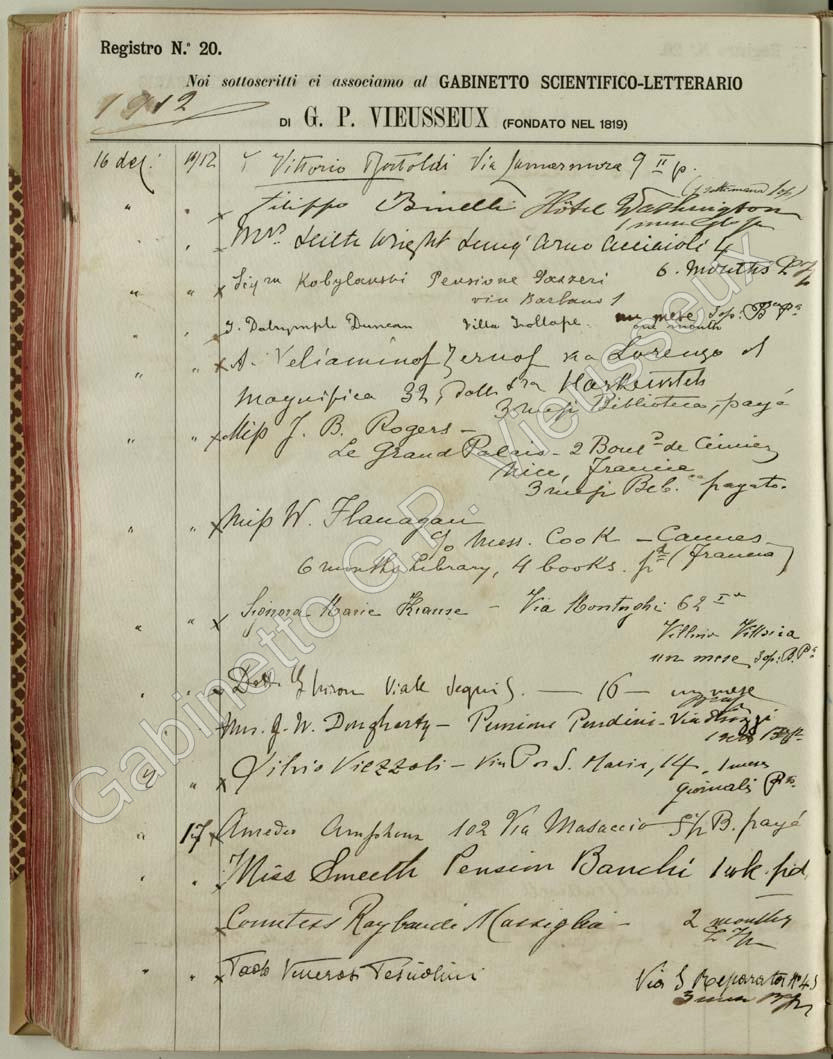 Registro N.° 20.
Noi sottoscritti ci associamo al GABINETTO SCIENTIFICO-LETTERARIO
1912
DI G. P. VIEUSSEUX (FONDATO NEL 1819)
16 1912 Vittorio Bertoldi Via Lamarmora 9 II p.
" " x Filippo Binelli Hôtel Washington
" Mrs. Leith Wright Lung' Arno Acciaioli 4
6. Months
" " x Sigra Kobylanski Pensione
via Barbano 1
" J. Dalrymple Duncan Villa Trollope. un mese
one month
" " x A. Veliaminof Zernof via Lorenzo il
Magnifico 32,
3 mesi Biblioteca, payé
" " x Miss J. B. Rogers –
Le Grand Palais – 2 Boul.d de Cimiez
Nice, Francia
3 mesi pagato.
" " x Miss W. Flanagan
c/o Mess. Cook – Cannes
6 months Library, 4 books. pd (Francia)
" " x Signora Marie Krause – Via Montughi 62
un mese,
" " x Dott. Viale – 16 – un mese
" x Mrs. J. W. Dougherty – Pensione Pendini – Via
" " x Silvio Viezzoli – Via Por S. Maria, 14, 1 mese
giornali
" 17 x Amedeo 102 Via Masaccio B. payé
" " x Miss Smeeth Pension Banchi 1 wk. pd
x Countess Raybaudi Massiglia – 2 months
" " x
Via S Reparata No 43
Gabinetto G.P. Vieusseux